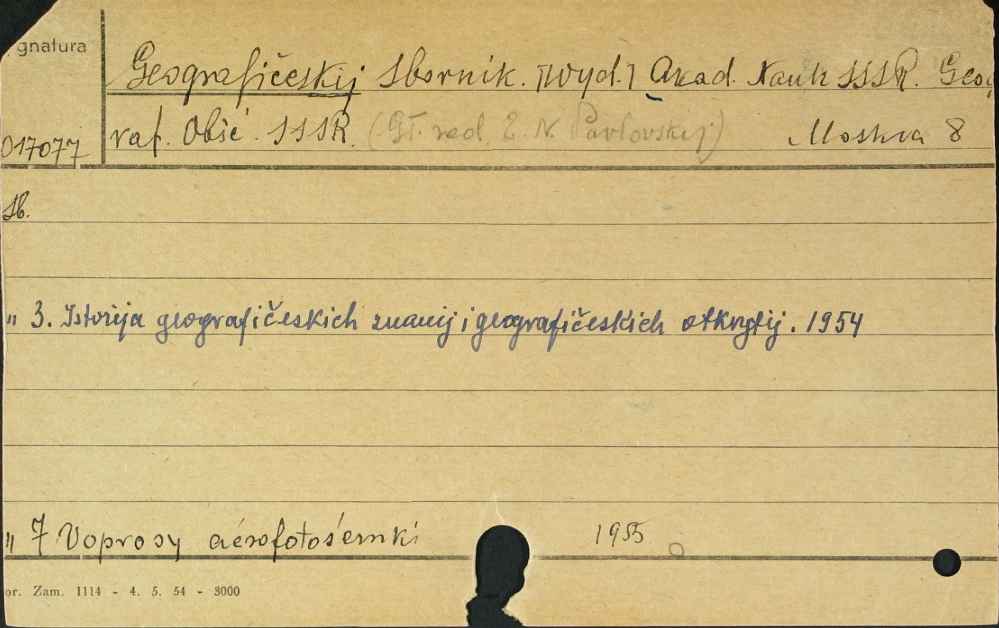 gnatura
Geografičeskij Sbornik. [Wyd.] Akad. Nauk SSSR. Geog
017077 raf. Obšč. SSSR. (Gł. red. E. N. Pavlovskij) Moskva 8
Sb.
„ 3. Istorija geografičeskich znanij i geografičeskich otkrytij. 1954
„ 7 Voprosy aérofotosʼemki 1955
or. Zam. 1114 - 4. 5. 54 - 3000